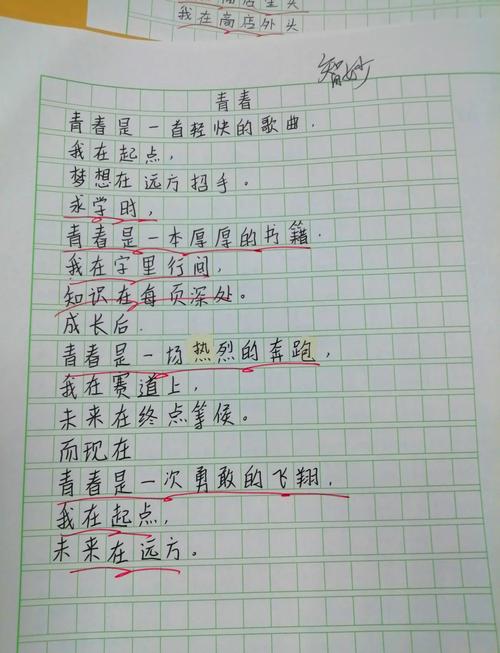 我在高店外头
智妙
青春
青春是一首轻快的歌曲.
我在起点,
梦想在远方招手。
求学时,
青春是一本厚厚的书籍.
我在字里行间,
知识在每页深处。
成长后.
青春是一场热烈的奔跑,
我在赛道上,
未来在终点等候。
而现在
青春是一次勇敢的飞翔.
我在起点,
未来在远方。